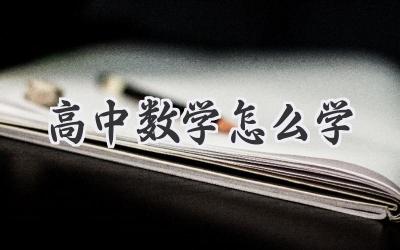 高中数学怎么学